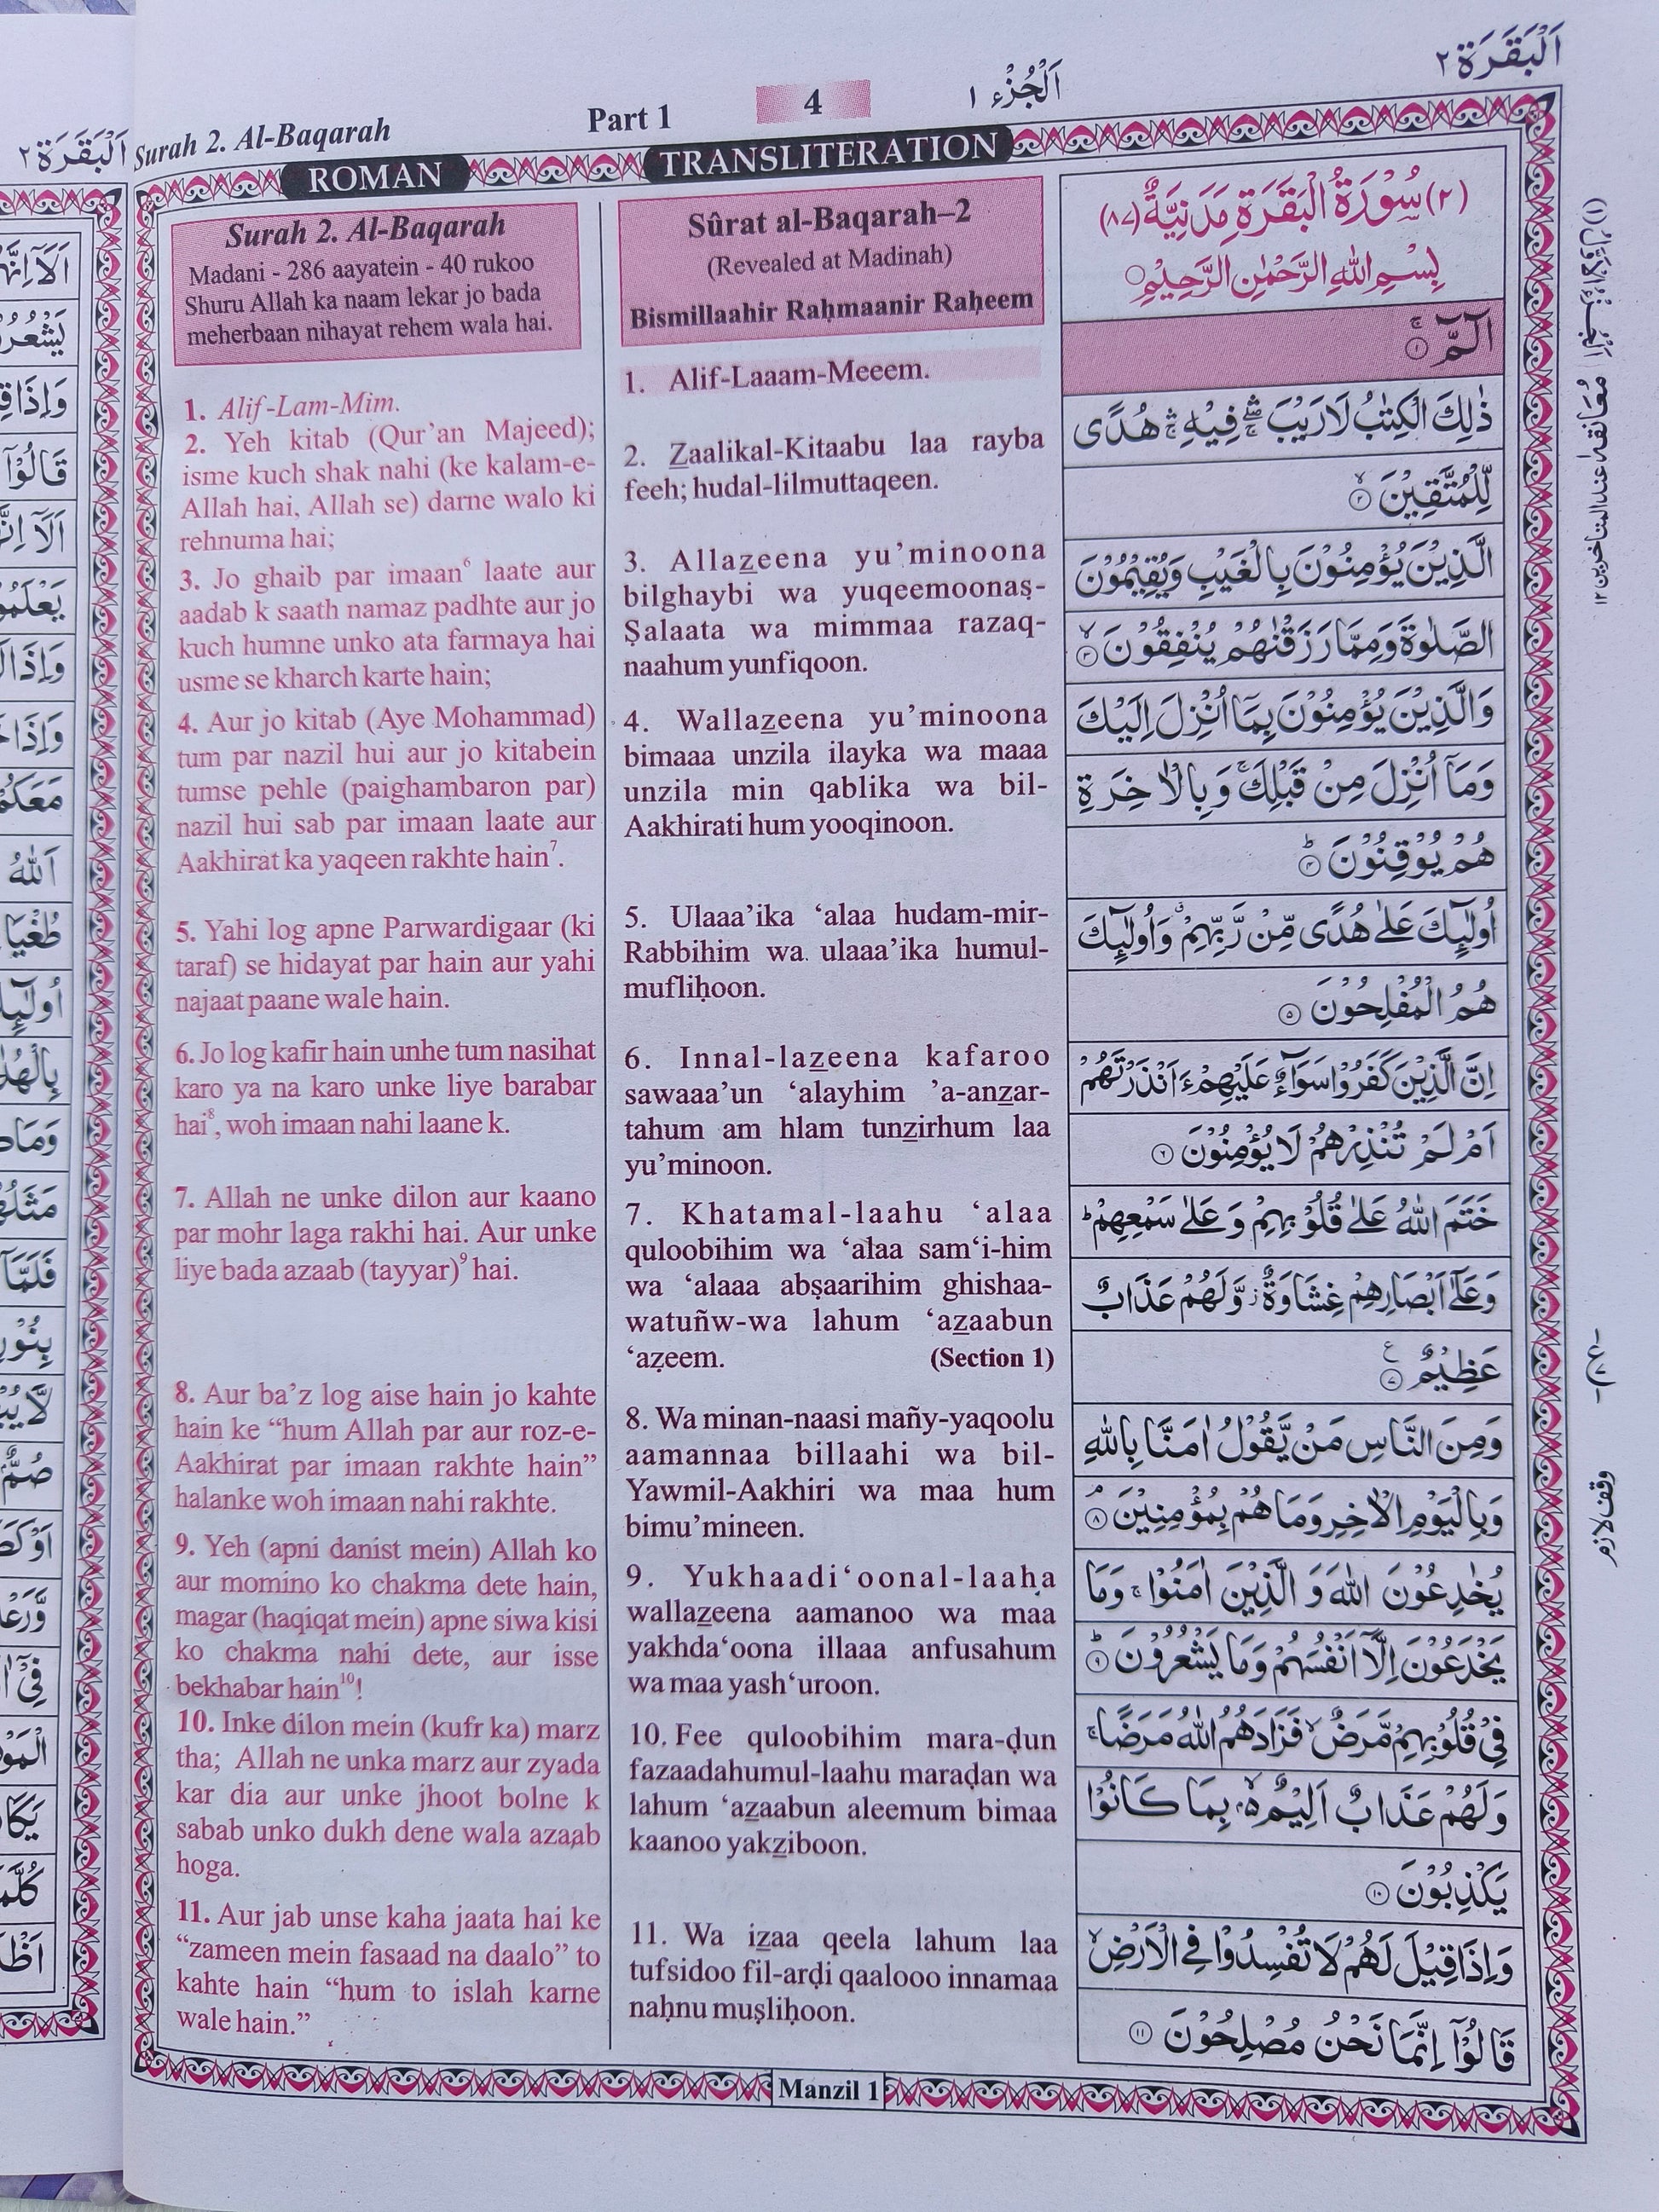 اَلْبَقَرَة ٢
Surah 2. Al-Baqarah
Part 1
4
اَلْجُزْء ١
اَلْبَقَرَة ٢
ROMAN
TRANSLITERATION
Surah 2. Al-Baqarah
Madani - 286 aayatein - 40 rukoo
Shuru Allah ka naam lekar jo bada
meherbaan nihayat rehem wala hai.
1. Alif-Lam-Mim.
2. Yeh kitab (Qur’an Majeed);
isme kuch shak nahi (ke kalam-e-
Allah hai, Allah se) darne walo ki
rehnuma hai;
3. Jo ghaib par imaan⁶ laate aur
aadab k saath namaz padhte aur jo
kuch humne unko ata farmaya hai
usme se kharch karte hain;
4. Aur jo kitab (Aye Mohammad)
tum par nazil hui aur jo kitabein
tumse pehle (paighambaron par)
nazil hui sab par imaan laate aur
Aakhirat ka yaqeen rakhte hain⁷.
5. Yahi log apne Parwardigaar (ki
taraf) se hidayat par hain aur yahi
najaat paane wale hain.
6. Jo log kafir hain unhe tum nasihat
karo ya na karo unke liye barabar
hai⁸, woh imaan nahi laane k.
7. Allah ne unke dilon aur kaano
par mohr laga rakhi hai. Aur unke
liye bada azaab (tayyar)⁹ hai.
8. Aur ba’z log aise hain jo kahte
hain ke “hum Allah par aur roz-e-
Aakhirat par imaan rakhte hain”
halanke woh imaan nahi rakhte.
9. Yeh (apni danist mein) Allah ko
aur momino ko chakma dete hain,
magar (haqiqat mein) apne siwa kisi
ko chakma nahi dete, aur isse
bekhabar hain¹⁰!
10. Inke dilon mein (kufr ka) marz
tha; Allah ne unka marz aur zyada
kar dia aur unke jhoot bolne k
sabab unko dukh dene wala azaab
hoga.
11. Aur jab unse kaha jaata hai ke
“zameen mein fasaad na daalo” to
kahte hain “hum to islah karne
wale hain.”
Sûrat al-Baqarah–2
(Revealed at Madinah)
Bismillaahir Raḥmaanir Raḥeem
1. Alif-Laaam-Meeem.
2. Z̲aalikal-Kitaabu laa rayba
feeh; hudal-lilmuttaqeen.
3. Allaz̲eena yu’minoona
bilghaybi wa yuqeemoonaṣ-
Ṣalaata wa mimmaa razaq-
naahum yunfiqoon.
4. Wallaz̲eena yu’minoona
bimaaa unzila ilayka wa maaa
unzila min qablika wa bil-
Aakhirati hum yooqinoon.
5. Ulaaa’ika ‘alaa hudam-mir-
Rabbihim wa ulaaa’ika humul-
mufliḥoon.
6. Innal-laz̲eena kafaroo
sawaaa’un ‘alayhim ’a-anz̲ar-
tahum am hlam tunz̲irhum laa
yu’minoon.
7. Khatamal-laahu ‘alaa
quloobihim wa ‘alaa sam‘i-him
wa ‘alaaa abṣaarihim ghishaa-
watuñw-wa lahum ‘az̲aabun
‘aẓeem. (Section 1)
8. Wa minan-naasi mañy-yaqoolu
aamannaa billaahi wa bil-
Yawmil-Aakhiri wa maa hum
bimu’mineen.
9. Yukhaadi‘oonal-laaha
wallaz̲eena aamanoo wa maa
yakhda‘oona illaaa anfusahum
wa maa yash‘uroon.
10. Fee quloobihim mara-ḍun
fazaadahumul-laahu maraḍan wa
lahum ‘az̲aabun aleemum bimaa
kaanoo yakz̲iboon.
11. Wa iz̲aa qeela lahum laa
tufsidoo fil-arḍi qaalooo innamaa
naḥnu muṣliḥoon.
(٢) سُوْرَةُ الْبَقَرَةِ مَدَنِيَّةٌ (٨٧)
بِسْمِ اللهِ الرَّحْمٰنِ الرَّحِيْمِ
الٓمّٓ ۚ ١
ذٰلِكَ الْكِتٰبُ لَا رَيْبَ ۛۖ فِيْهِ ۛۚ هُدًى
لِّلْمُتَّقِيْنَ ۙ ٢
الَّذِيْنَ يُؤْمِنُوْنَ بِالْغَيْبِ وَيُقِيْمُوْنَ
الصَّلٰوةَ وَمِمَّا رَزَقْنٰهُمْ يُنْفِقُوْنَ ۙ ٣
وَالَّذِيْنَ يُؤْمِنُوْنَ بِمَآ اُنْزِلَ اِلَيْكَ
وَمَآ اُنْزِلَ مِنْ قَبْلِكَ ۚ وَبِالْاٰخِرَةِ
هُمْ يُوْقِنُوْنَ ؕ ٤
اُولٰٓئِكَ عَلٰى هُدًى مِّنْ رَّبِّهِمْ ۗ وَاُولٰٓئِكَ
هُمُ الْمُفْلِحُوْنَ ٥
اِنَّ الَّذِيْنَ كَفَرُوْا سَوَآءٌ عَلَيْهِمْ ءَاَنْذَرْتَهُمْ
اَمْ لَمْ تُنْذِرْهُمْ لَا يُؤْمِنُوْنَ ٦
خَتَمَ اللهُ عَلٰى قُلُوْبِهِمْ وَعَلٰى سَمْعِهِمْ ؕ
وَعَلٰٓى اَبْصَارِهِمْ غِشَاوَةٌ ز وَّلَهُمْ عَذَابٌ
عَظِيْمٌ ٧ ع
وَمِنَ النَّاسِ مَنْ يَّقُوْلُ اٰمَنَّا بِاللهِ
وَبِالْيَوْمِ الْاٰخِرِ وَمَا هُمْ بِمُؤْمِنِيْنَ ۘ ٨
يُخٰدِعُوْنَ اللهَ وَ الَّذِيْنَ اٰمَنُوْا ۚ وَمَا
يَخْدَعُوْنَ اِلَّآ اَنْفُسَهُمْ وَمَا يَشْعُرُوْنَ ؕ ٩
فِيْ قُلُوْبِهِمْ مَّرَضٌ ۙ فَزَادَهُمُ اللهُ مَرَضًا ۚ
وَلَهُمْ عَذَابٌ اَلِيْمٌ ۢ ۙ بِمَا كَانُوْا
يَكْذِبُوْنَ ١٠
وَاِذَا قِيْلَ لَهُمْ لَا تُفْسِدُوْا فِي الْاَرْضِ ۙ
قَالُوْٓا اِنَّمَا نَحْنُ مُصْلِحُوْنَ ١١
وقف لازم
Manzil 1